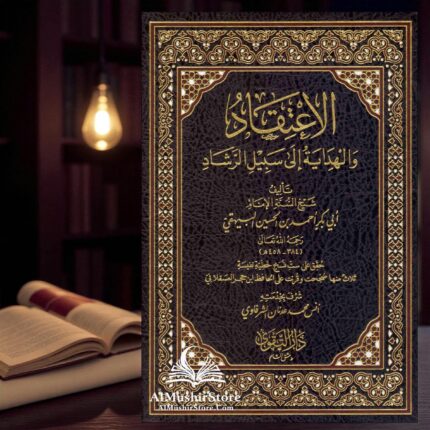 الاعتقاد
والهداية إلى سبيل الرشاد
تأليف
شيخ السنة الإمام
أبي بكر أحمد بن الحسين البيهقي
رحمه الله تعالى
(٣٨٤ - ٤٥٨ هـ)
حقق على ست نسخ خطية نفيسة
ثلاث منها صححت وقرئت على الحافظ ابن حجر العسقلاني
شرف بخدمته
أنس محمد عدنان الشرفاوي
دار التقوى
دمشق الشام
AlMushirStore
AlMushirStore.Com